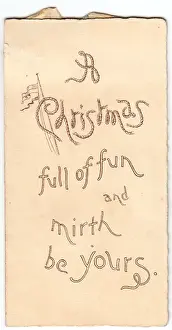 A
Christmas
full of fun
and
mirth
be yours.